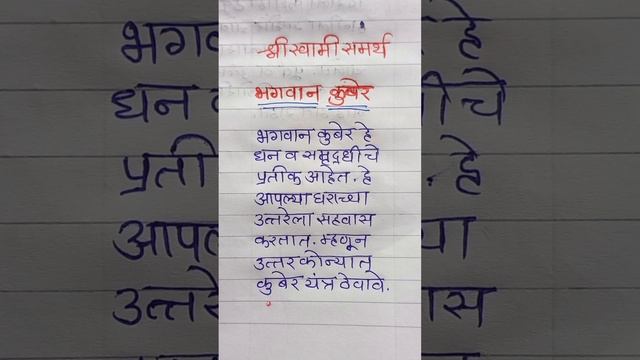 श्री स्वामी समर्थ
भगवान कुबेर
भगवान कुबेर हे
धन व समृद्धीचे
प्रतीक आहेत. हे
आपल्या घराच्या
उत्तरेला सहवास
करतात. म्हणून
उत्तर कोन्यात
कुबेर यंत्र ठेवावे.